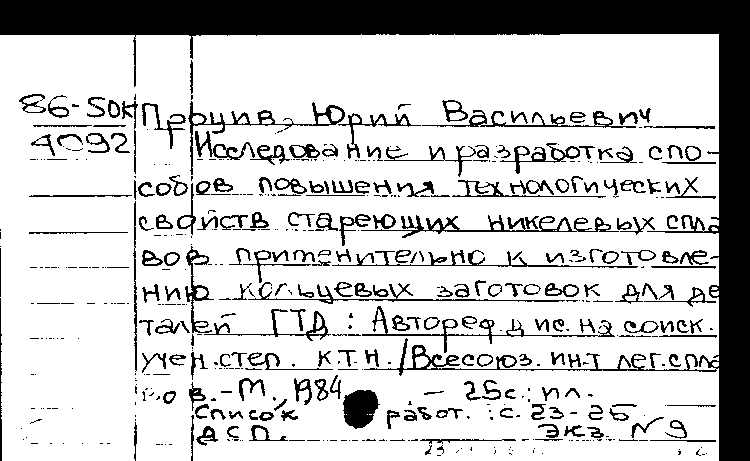 86-50К Процив, Юрий Васильевич
4092 Исследование и разработка спо-
собов повышения технологических
свойств стареющих никелевых спла
вов применительно к изготовле-
нию кольцевых заготовок для де
талей ГТД : Автореф. дис. на соиск.
учен. степ. к.т.н. / Всесоюз. ин-т лег. спла
вов. - М., 1984. - 25с.: ил.
Список работ. : с. 23-25
ДСП. экз. N 9